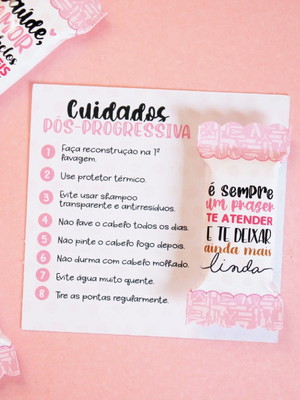 Saúde,
AMOR
Cuidados
PÓS-PROGRESSIVA
1 Faça reconstrução na 1ª
lavagem.
2 Use protetor térmico.
3 Evite usar shampoo
transparente e antirresíduos.
4 Não lave o cabelo todos os dias.
5 Não pinte o cabelo logo depois.
6 Não durma com cabelo molhado.
7 Evite água muito quente.
8 Tire as pontas regularmente.
é sempre
um prazer
TE ATENDER
E TE DEIXAR
ainda mais
linda